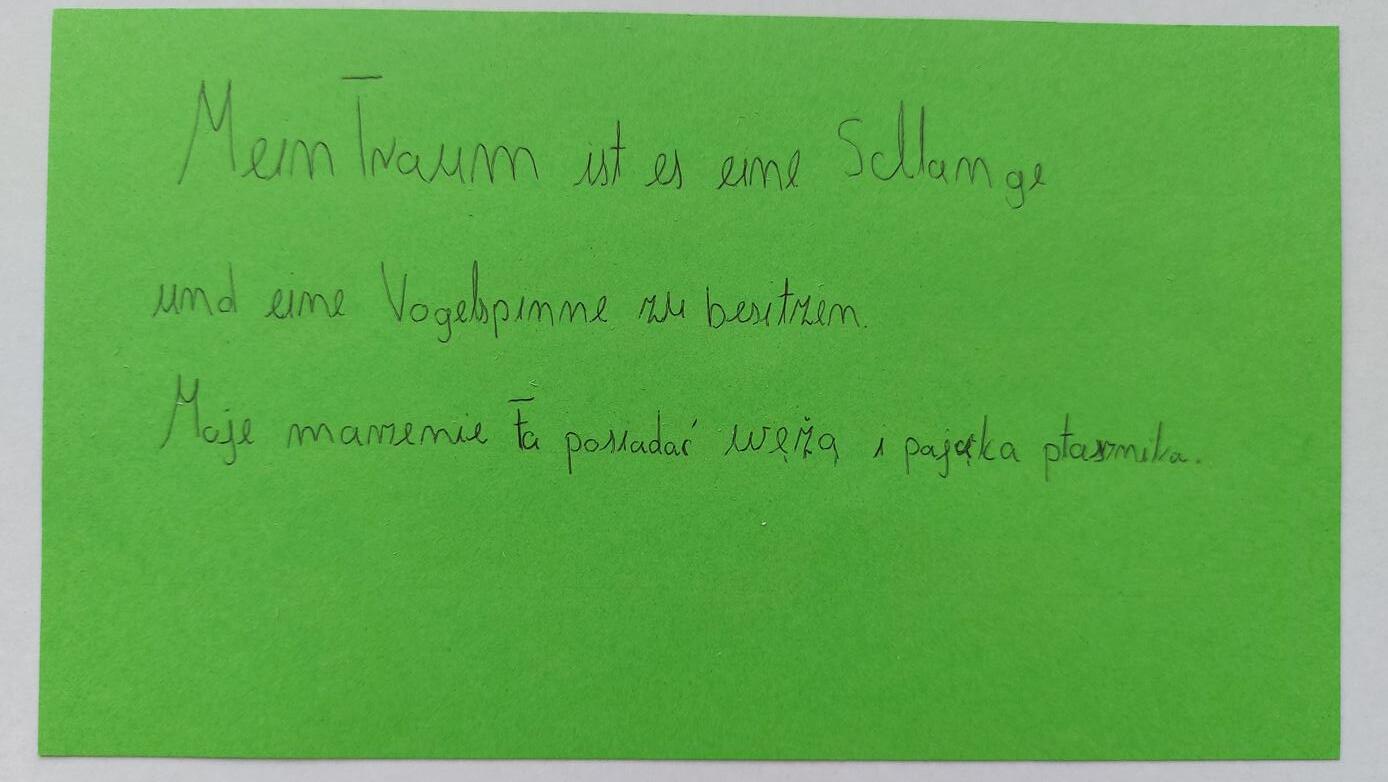 Mein Traum ist es eine Schlange
und eine Vogelspinne zu besitzen.
Moje marzenie to posiadać wężą i pająka ptasznika.